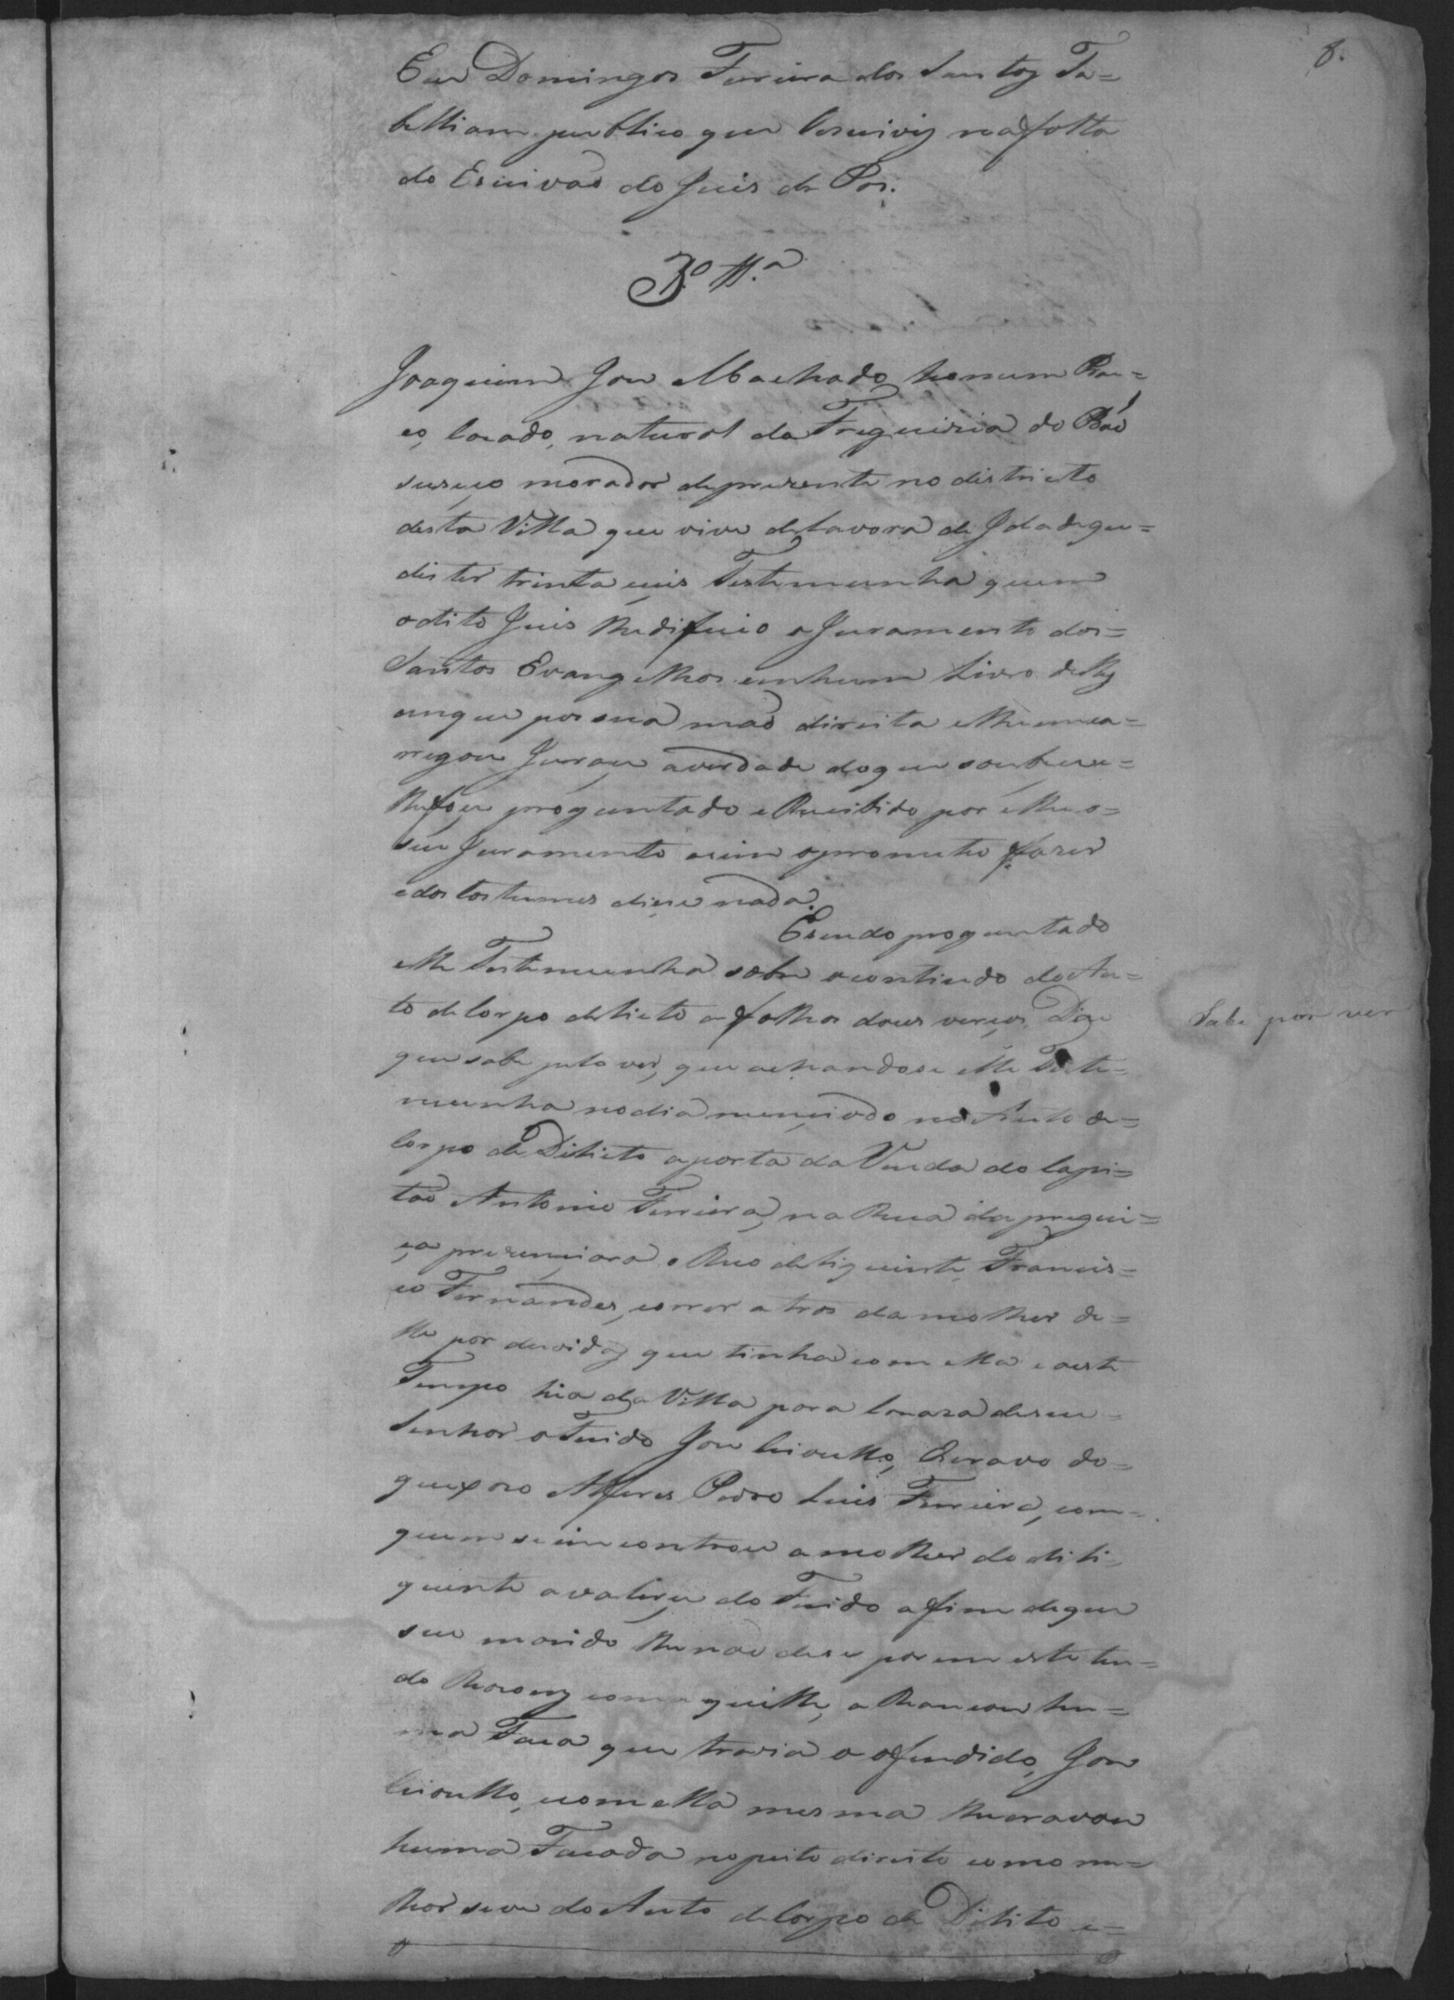 8.
Eu Domingos Ferreira dos Santos Ta=
belliam publico que Escrivy na falta
do Escrivaõ do Juis de Pas.
3.º Tt.ª
Joaquim Jose Machado, homem Bran=
co, Cazado, natural da Freguizia do
morador deprezente no districto
desta Villa que vive de Lavora de Idade que
dis ter trinta Testemunha quem
o dito Juis lhe difirio o Juramento dos=
Santos Evangelhos em hum Livro delles
em que pos sua maõ direita e lhe emca=
rregou Juraçe a verdade do que soubeçe e=
lhe foçe proguntado e Recibido por elle o=
seu Juramento acim o prometeo fazer
e dos Costumes diçe nada.
E sendo proguntado
elle Testemunha sobre o contiudo do Au=
to de Corpo delicto a folhas duas verço, Diçe
que sabe pelo ver, que achandoce elle Teste=
munha no dia mencionado no Auto de=
Corpo de Dilicto a porta da Venda do Capi=
taõ Antonio Ferreira, na Rua da pregui=
ça prezenciara o Reo deliquente Francis=
co Fernandes, correr a tras da molher de=
lle por duvidas que tinha com ella e neste
Tempo hia da Villa para a caza de seu=
Senhor o Firido Jose Crioullo, Escravo do=
queixozo Alferes Pedro Luis Ferreira, com=
quem se incontrou a molher do dili=
quente a valerçe do Firido a fim de que
seu marido lhe naõ dese porem este ten=
do Rezoens com aquelle, aRancou hu=
ma Faca que trazia o ofendido, Jose
Crioullo, e com ella mesma lhe cravou
huma Facada no peito direito como me=
lhor se ve do Auto de Corpo de Dilito e=
Sabe por ver